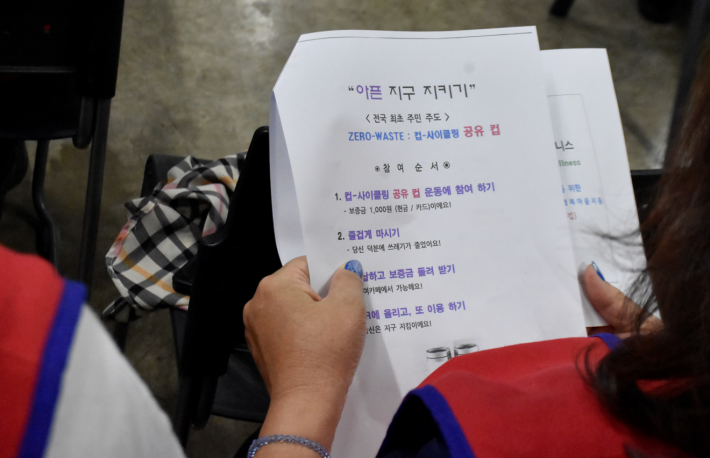 “아픈 지구 지키기”
< 전국 최초 주민 주도 >
ZERO-WASTE : 컵-사이클링 공유 컵
※참 여 순 서※
1. 컵-사이클링 공유 컵 운동에 참여 하기
- 보증금 1,000원 (현금 / 카드)이에요!
2. 즐겁게 마시기
- 당신 덕분에 쓰레기가 줄었어요!
납하고 보증금 돌려 받기
여카페에서 가능해요!
에 올리고, 또 이용 하기
신은 지구 지킴이에요!
니스
llness
위한
컵]